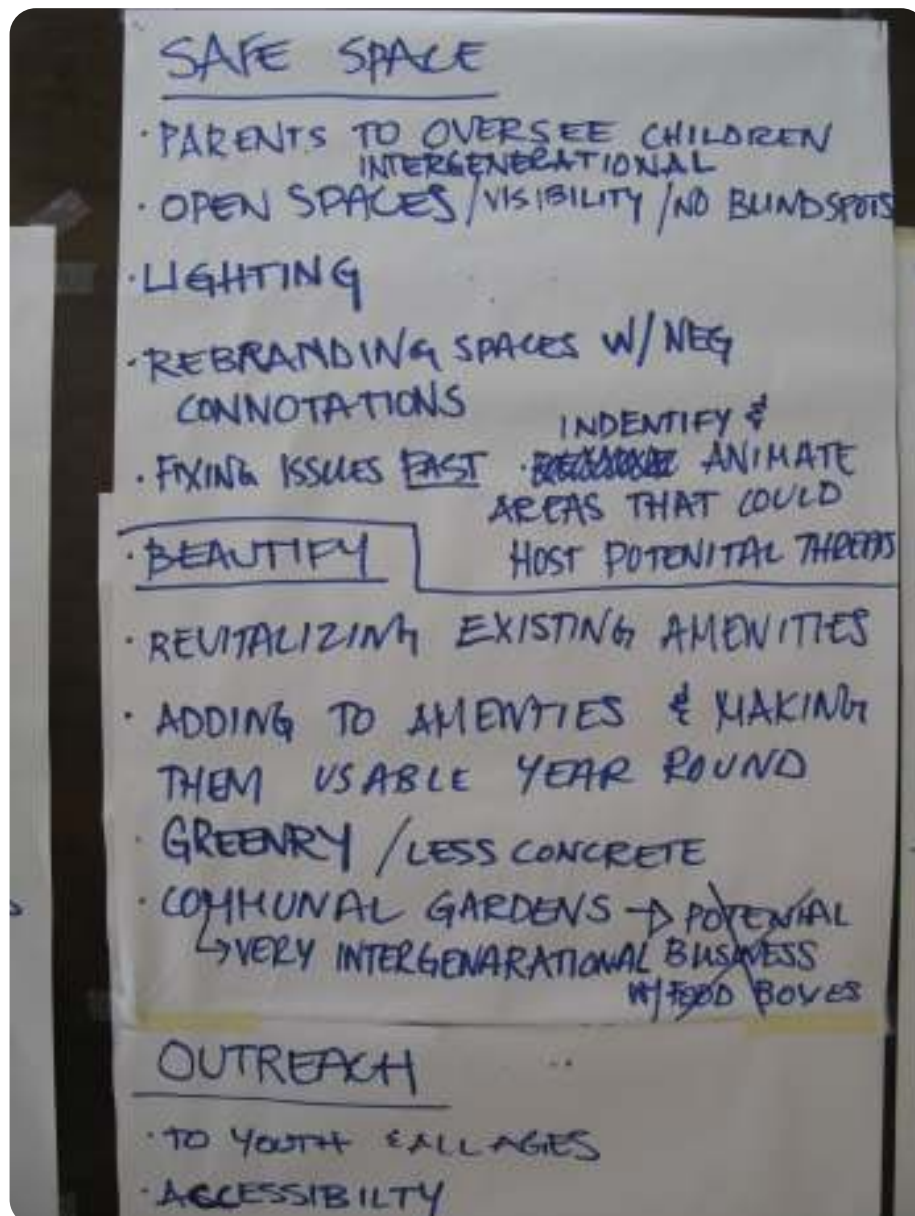 SAFE SPACE
· PARENTS TO OVERSEE CHILDREN
INTERGENERATIONAL
· OPEN SPACES / VISIBILITY / NO BLINDSPOTS
· LIGHTING
· REBRANDING SPACES W/ NEG
CONNOTATIONS
· FIXING ISSUES FAST
INDENTIFY &
· ANIMATE
AREAS THAT COULD
HOST POTENITAL THREATS
· BEAUTIFY
· REVITALIZING EXISTING AMENITIES
· ADDING TO AMENTIES & MAKING
THEM USABLE YEAR ROUND
· GREENRY / LESS CONCRETE
· COMMUNAL GARDENS → POTENIAL
↳ VERY INTERGENARATIONAL BUSINESS
W/ FOOD BOXES
OUTREACH
· TO YOUTH & ALL AGES
· ACCESSIBILTY